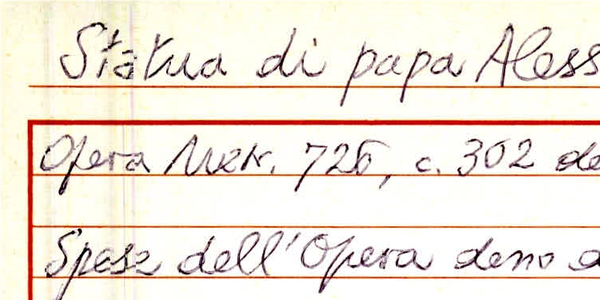 Statua di papa Aless
Opera Metr. 726, c. 302 de
Spese dell'Opera deno a